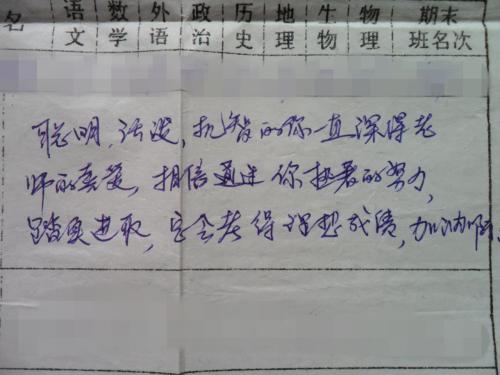 名 语文 数学 外语 政治 历史 地理 生物 物理 期末班名次
聪明、活泼,机智的你一直深得老
师的喜爱,相信通过你执着的努力,
踏实进取,定会考得理想成绩,加油啊